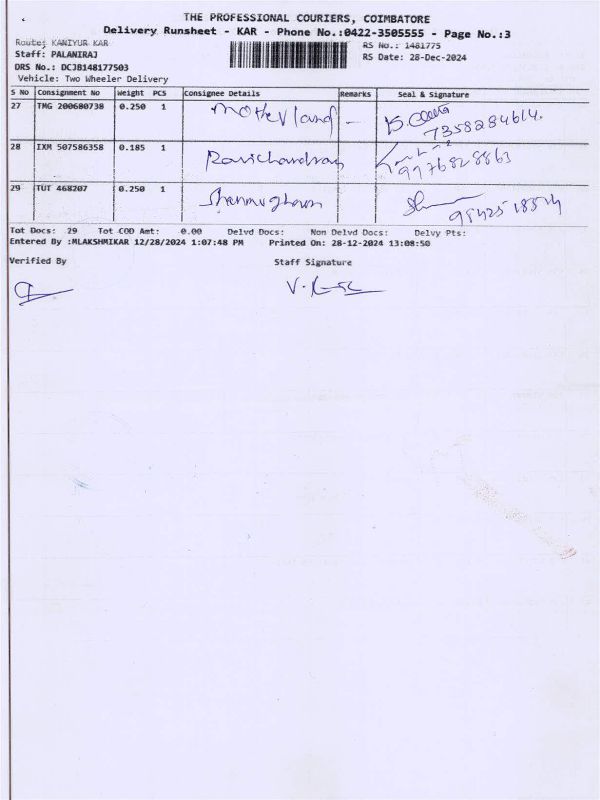 THE PROFESSIONAL COURIERS, COIMBATORE
Delivery Runsheet - KAR - Phone No.:0422-3505555 - Page No.:3
Route: KANIYUR KAR
RS No.: 1481775
Staff: PALANIRAJ
RS Date: 28-Dec-2024
DRS No.: DCJB148177503
Vehicle: Two Wheeler Delivery
S No Consignment No Weight PCS Consignee Details Remarks Seal & Signature
27 TMG 200680738 0.250 1 motherland -
7358284614.
28 IXM 507586358 0.185 1 Ravichandran
9976828863
29 TUT 468207 0.250 1 Shanmugham
Tot Docs: 29 Tot COD Amt: 0.00 Delvd Docs: Non Delvd Docs: Delvy Pts:
Entered By :MLAKSHMIKAR 12/28/2024 1:07:48 PM Printed On: 28-12-2024 13:08:50
Verified By Staff Signature